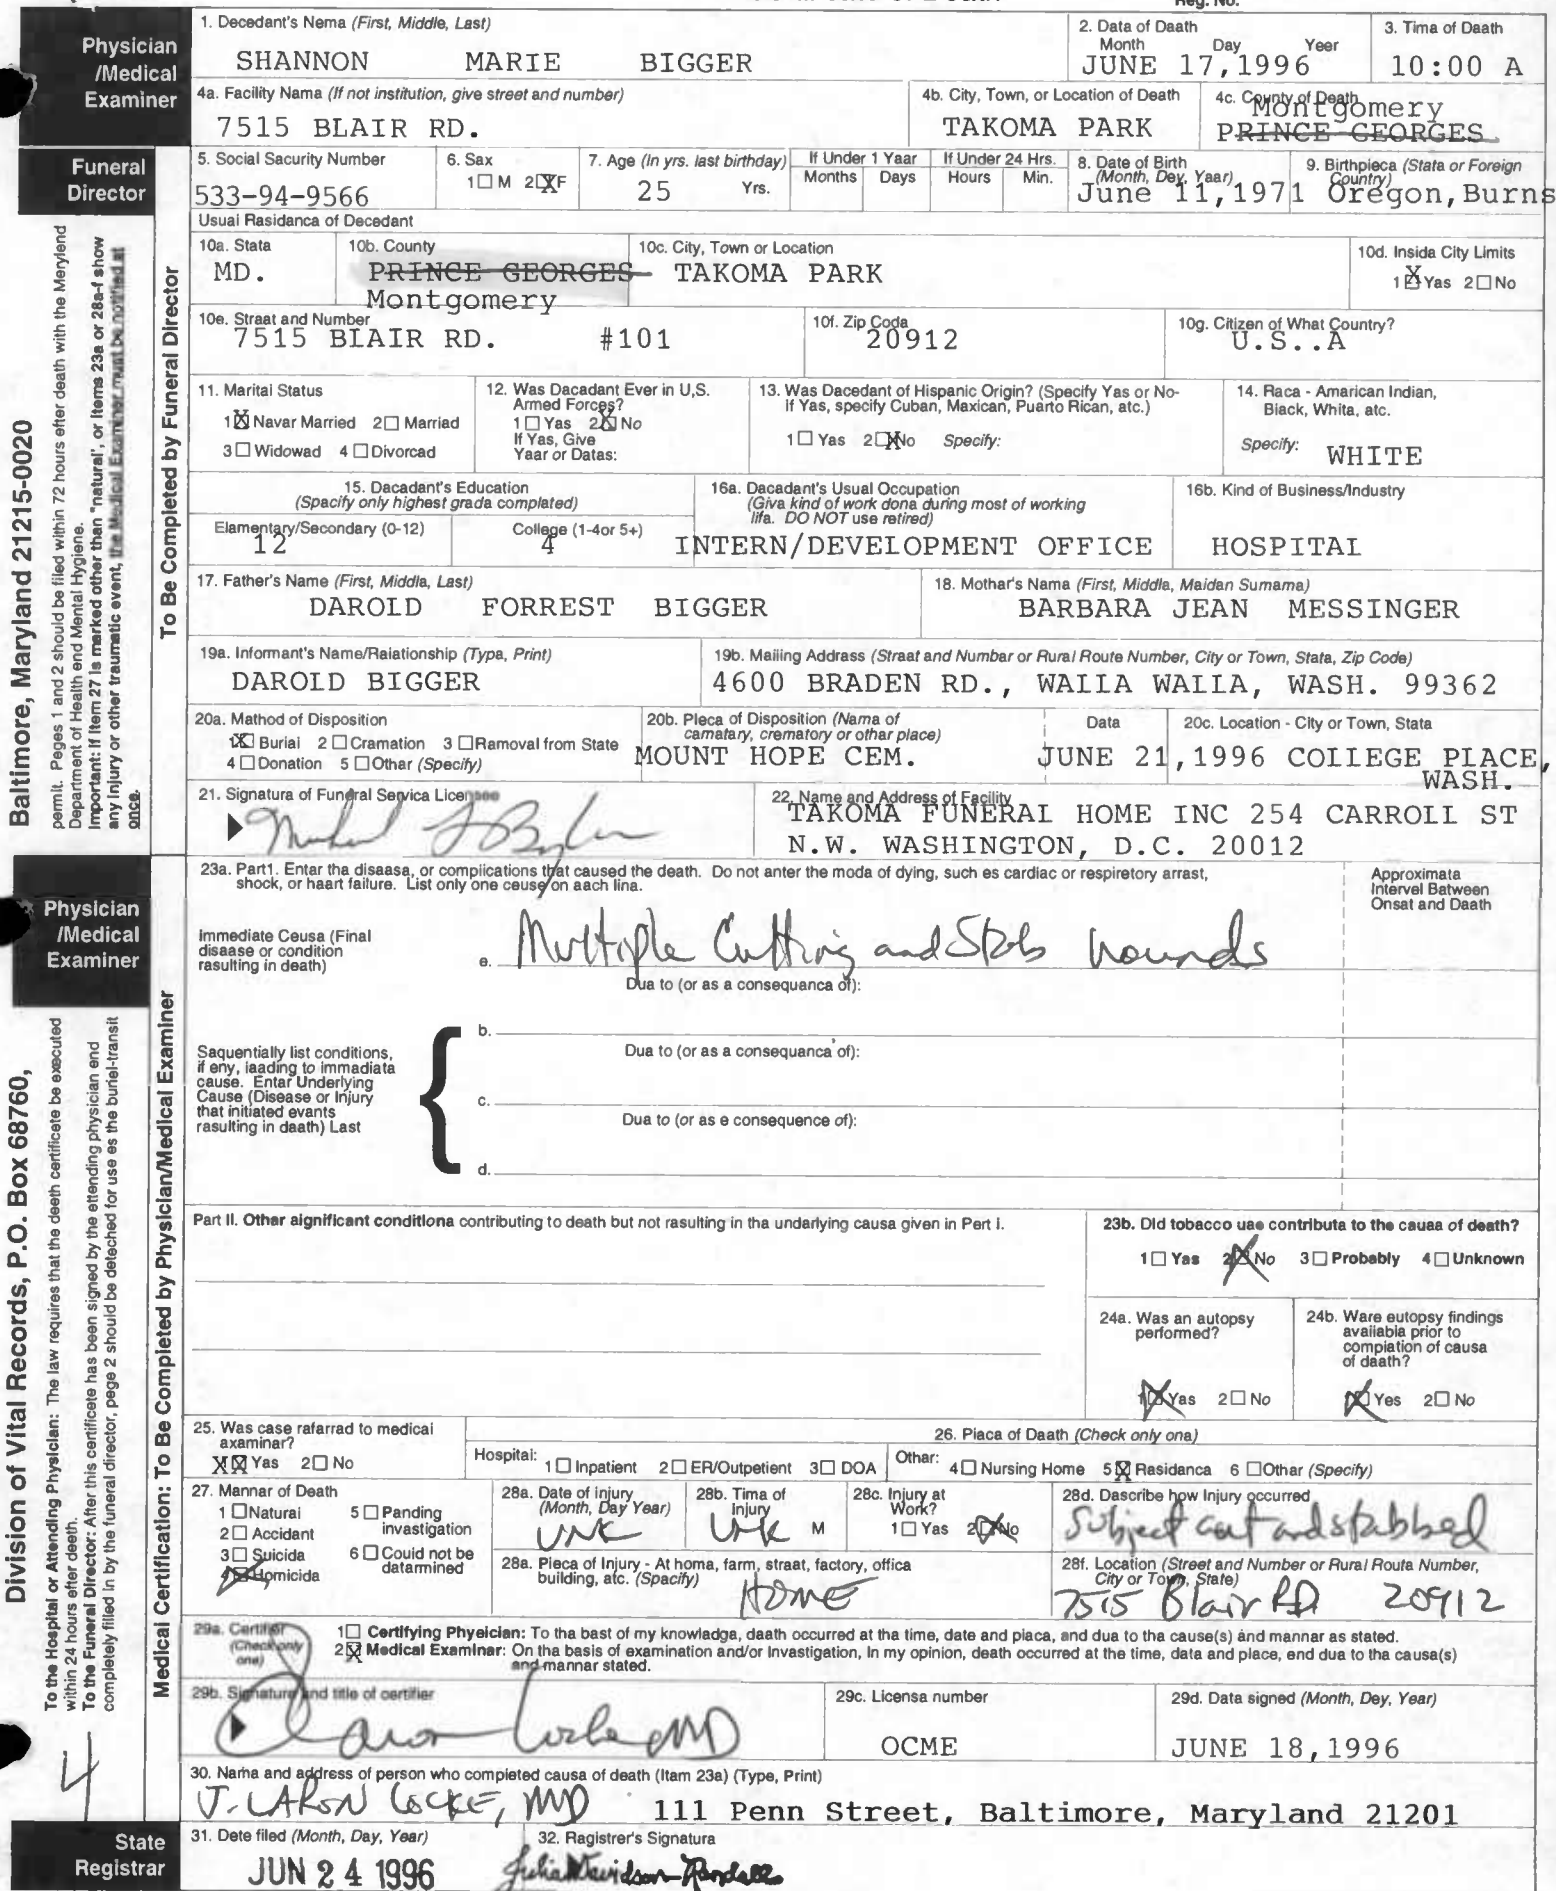 Reg. No.
Physician
/Medical
Examiner
1. Decedant's Nema (First, Middle, Last)
SHANNON MARIE BIGGER
2. Data of Daath
Month Day Yeer
JUNE 17,1996
3. Tima of Daath
10:00 A
4a. Facility Nama (If not institution, give street and number)
7515 BLAIR RD.
4b. City, Town, or Location of Death
TAKOMA PARK
4c. County of Death
Montgomery
PRINCE GEORGES
Funeral
Director
5. Social Sacurity Number
533-94-9566
6. Sax
1☐ M 2☒F
7. Age (In yrs. last birthday)
25 Yrs.
If Under 1 Yaar
Months Days
If Under 24 Hrs.
Hours Min.
8. Date of Birth
(Month, Dey, Yaar)
June 11,1971
9. Birthpieca (Stata or Foreign
Country)
Oregon,Burns
Usuai Rasidanca of Decedant
10a. Stata
MD.
10b. County
PRINCE GEORGES
Montgomery
10c. City, Town or Location
TAKOMA PARK
10d. Insida City Limits
1☒Yas 2☐No
10e. Straat and Number
7515 BIAIR RD. #101
10f. Zip Coda
20912
10g. Citizen of What Country?
U.S..A
11. Marital Status
1☒ Navar Married 2☐ Marriad
3☐ Widowad 4☐ Divorcad
12. Was Dacadant Ever in U,S.
Armed Forces?
1☐ Yas 2☒ No
If Yas, Give
Yaar or Datas:
13. Was Dacedant of Hispanic Origin? (Specify Yas or No-
If Yas, specify Cuban, Maxican, Puarto Rican, atc.)
1☐ Yas 2☒No Specify:
14. Raca - Amarican Indian,
Biack, Whita, atc.
Specify: WHITE
15. Dacadant's Education
(Spacify only highest grada complated)
Elamantary/Secondary (0-12)
12
Collage (1-4or 5+)
4
16a. Dacadant's Usual Occupation
(Giva kind of work dona during most of working
lifa. DO NOT use retired)
INTERN/DEVELOPMENT OFFICE
16b. Kind of Businass/Industry
HOSPITAL
17. Father's Name (First, Middla, Last)
DAROLD FORREST BIGGER
18. Mothar's Nama (First, Middla, Maidan Sumama)
BARBARA JEAN MESSINGER
19a. Informant's Nama/Raiationship (Typa, Print)
DAROLD BIGGER
19b. Maiiing Addrass (Straat and Numbar or Rurai Routa Number, City or Town, Stata, Zip Coda)
4600 BRADEN RD., WALIA WALIA, WASH. 99362
20a. Mathod of Disposition
1☒ Buriai 2☐Cramation 3☐Ramoval from State
4☐Donation 5☐Othar (Specify)
20b. Pleca of Disposition (Nama of
camatary, crematory or othar place)
MOUNT HOPE CEM.
Data
JUNE 21,1996
20c. Location - City or Town, Stata
COIIEGE PLACE,
WASH.
21. Signatura of Funéral Servica Licensee
22. Name and Address of Facility
TAKOMA FUNERAL HOME INC 254 CARROLL ST
N.W. WASHINGTON, D.C. 20012
To Be Completed by Funeral Director
Baltimore, Maryland 21215-0020
permit. Peges 1 and 2 should be filed within 72 hours efter death with the Merylend
Department of Health end Mental Hygiene.
Important: If Item 27 Is merked other than "natural', or Items 23e or 28a-f show
any Injury or other traumatic event, the Medical Examiner must be notified at
once.
Physician
/Medical
Examiner
23a. Part1. Enter tha disaasa, or compiications that caused the death. Do not anter the moda of dying, such es cardiac or respiretory arrast,
shock, or haart failure. List only one ceuse on aach lina.
Approximata
Intervel Batween
Onsat and Daath
Immediate Ceusa (Final
disease or condition
rasulting in death)
e. Multiple Cutting and Stab wounds
Dua to (or as a consequanca of):
b.
Dua to (or as a consequanca of):
Saquentially list conditions,
if eny, iaading to immadiata
cause. Entar Underlying
Cause (Disease or Injury
that initiated evants
rasulting in daath) Last
c.
Dua to (or as e consequence of):
d.
Part II. Other aignificant conditiona contributing to death but not rasulting in tha undarlying causa given in Pert I.
23b. Did tobacco uae contributa to the cauaa of death?
1☐ Yas 2☒No 3☐Probably 4☐Unknown
24a. Was an autopsy
performed?
1☒Yas 2☐No
24b. Ware eutopsy findings
availabla prior to
compiation of causa
of daath?
1☒Yes 2☐No
25. Was case rafarrad to medicai
axaminar?
X☒Yas 2☐No
26. Piaca of Daath (Check only ona)
Hospital: 1☐Inpatient 2☐ER/Outpetient 3☐DOA Othar: 4☐Nursing Home 5☒Rasidanca 6☐Othar (Specify)
27. Mannar of Death
1☐Naturai 5☐Panding
invastigation
2☐Accidant
3☐Suicida 6☐Couid not be
datarmined
4☒Homicida
28a. Date of injury
(Month, Day Year)
UNK
28b. Tima of
Injury
UNK M
28c. Injury at
Work?
1☐Yas 2☒No
28d. Describe how Injury occurred
Subject cut and stabbed
28a. Pleca of Injury - At homa, farm, straat, factory, offica
building, atc. (Spacify)
HOME
28f. Location (Street and Number or Rural Routa Number,
City or Town, State)
7515 Blair RD 20912
29a. Certifier
(Check only
one)
1☐ Certifying Phyeician: To tha bast of my knowladga, daath occurred at tha time, date and piaca, and dua to the cause(s) and mannar as stated.
2☒ Medical Examlnar: On tha basis of examination and/or Investigation, In my opinion, death occurred at the time, data and place, end due to tha causa(s)
and mannar stated.
29b. Signature and title of certifier
29c. Licensa number
OCME
29d. Data signed (Month, Dey, Year)
JUNE 18,1996
30. Nama and address of person who completed causa of death (Itam 23a) (Type, Print)
J. LARON LOCKE, MD 111 Penn Street, Baltimore, Maryland 21201
Medical Certification: To Be Completed by Physician/Medical Examiner
Division of Vital Records, P.O. Box 68760,
To the Hospital or Attending Physician: The law requires that the deeth certificete be executed
within 24 hours efter deeth.
To the Funeral Director: After this certificete has been signed by the ettending physician end
completely filled in by the funeral director, pege 2 should be deteched for use es the buriel-transit
4
State
Registrar
31. Dete filed (Month, Day, Year)
JUN 24 1996
32. Ragistrer's Signatura
Julia Davidson-Randall